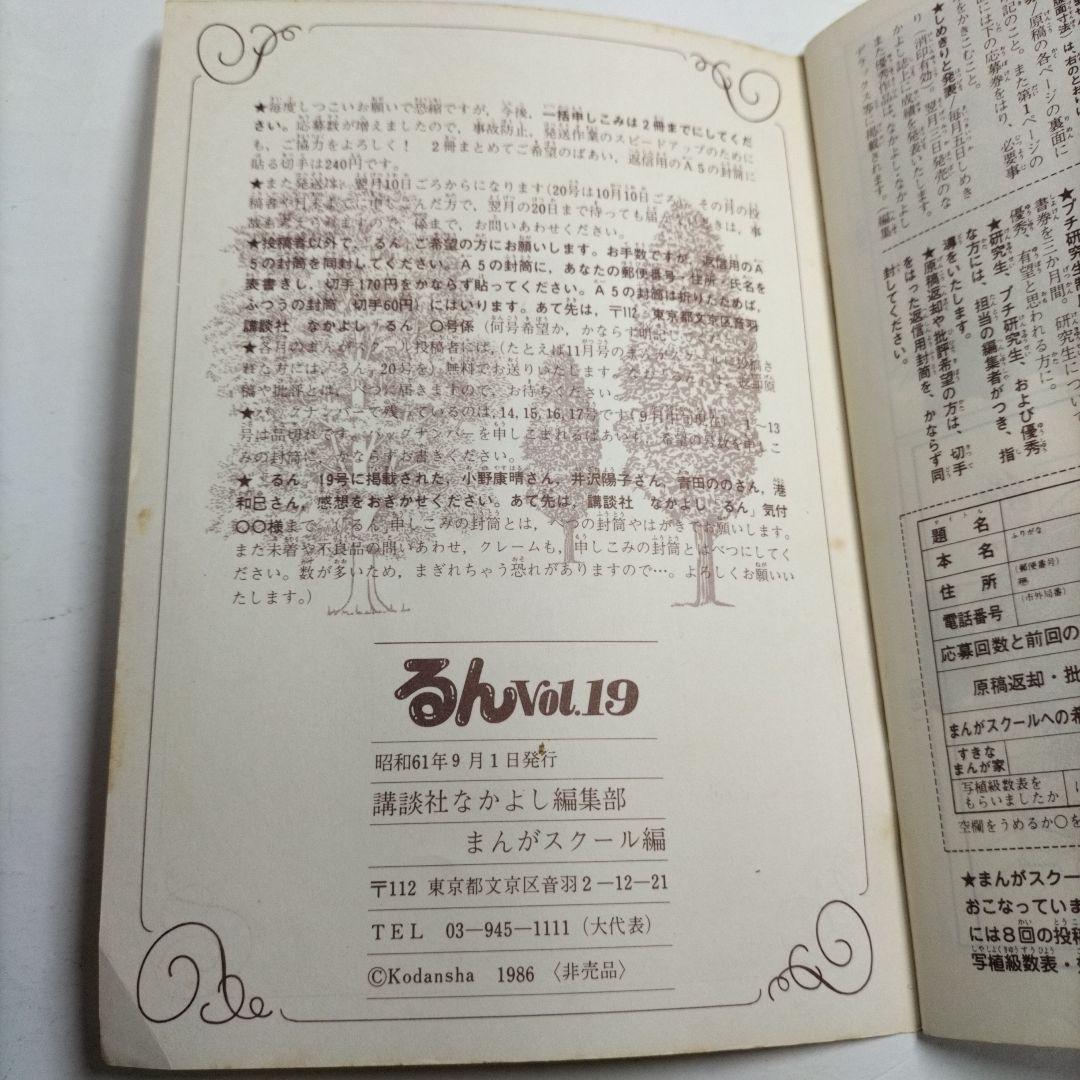 ★毎度しつこいお願いで恐縮ですが，今後，一括申しこみは2冊までにしてくだ
さい。応募数が増えましたので，事故防止，発送作業のスピードアップのために
も，ご協力をよろしく！ 2冊まとめてご希望のばあい，返信用のA5の封筒に
貼る切手は240円です。
★また発送は，翌月10日ごろからになります(20号は10月10日ごろ)。その月の投
稿者や月末までに申しこんだ方で，翌月の20日まで待っても届かないときは，事
故も考えられますので，
様まで，お問いあわせください。
★投稿者以外で，「るん」ご希望の方にお願いします。お手数ですが，返信用のA
5の封筒を同封してください。A5の封筒に，あなたの郵便番号・住所・氏名を
表書きし，切手170円をかならず貼ってください。A5の封筒は折りたためば，
ふつうの封筒（切手60円）にはいります。あて先は，〒112 東京都文京区音羽
講談社 なかよし「るん」〇号係（何号希望か，かならず明記）
★各月のまんがスクール投稿者には，(たとえば11月号のまんがスクールに投稿さ
れた方には，「るん」20号を）無料でお送りいたします。
稿や批評とは，べつに届きますので，お待ちください。
★バックナンバーで残っているのは，14，15，16，17号です（9月1日現在）。1～13
号は品切れです。バックナンバーを申しこまれるばあいも，希望の号数を申しこ
みの封筒に，かならずお書きください。
★「るん」19号に掲載された，小野康晴さん，井沢陽子さん，吉田ののさん，港
和巳さん，感想をおきかせください。あて先は，講談社 なかよし「るん」気付
〇〇様まで。（「るん」申しこみの封筒とは，べつの封筒やはがきでお願いします。
また未着や不良品の問いあわせ，クレームも，申しこみの封筒とはべつにしてく
ださい。数が多いため，まぎれちゃう恐れがありますので…。よろしくお願いい
たします。）
るんVol.19
昭和61年9月1日発行
講談社なかよし編集部
まんがスクール編
〒112 東京都文京区音羽2—12—21
TEL 03—945—1111（大代表）
©Kodansha 1986〈非売品〉
版面寸法）は，右のとおり
原稿の各ページの裏面に
記のこと。また第1ページの
面には下の応募券をはり，必要事
をかきこむこと。
★しめきりと発表／毎月五日しめき
り（消印有効）。翌月三日発売のな
かよし誌上に成績を発表いたします。
また優秀作品は，なかよし・なかよし
デラックス等に掲載されます。
★プチ研究生
書券を三か月間。研究生について
優秀，有望と思われる方に。
★研究生，プチ研究生，および優秀
な方には，担当の編集者がつき，指
導をいたします。
★原稿返却や批評希望の方は，切手
をはった返信用封筒を，かならず同
封してください。
題名
本名 ふりがな
住所 (郵便番号)
電話番号 (市外局番)
応募回数と前回の
原稿返却・批
まんがスクールへの希
すきな
まんが家
写植級数表を
もらいましたか
空欄をうめるか〇を
★まんがスクー
おこなっていま
には8回の投稿
写植級数表・